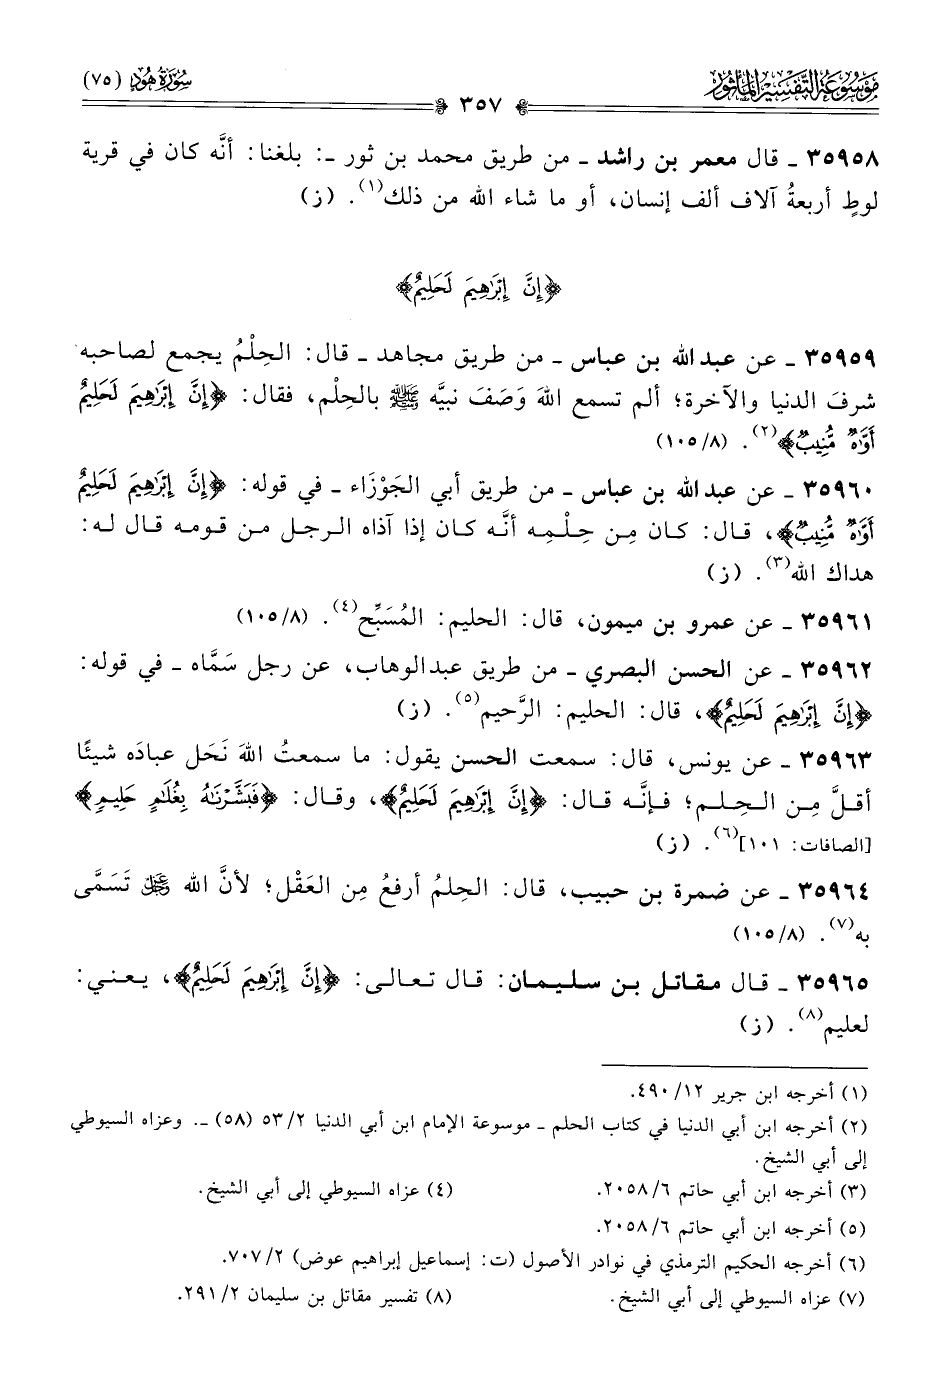 مَوْسُوعَة التَّفْسِيْر المَأْثُور
٣٥٧
سُوْرَةُ هُودٍ (٧٥)
٣٥٩٥٨ ـ قال معمر بن راشد ـ من طريق محمد بن ثور ـ: بلغنا: أنَّه كان في قرية
لوطٍ أربعةُ آلاف ألف إنسان، أو ما شاء الله من ذلك(١). (ز)
﴿إِنَّ إِبْرَٰهِيمَ لَحَلِيمٌ﴾
٣٥٩٥٩ ـ عن عبد الله بن عباس ـ من طريق مجاهد ـ قال: الحِلْمُ يجمع لصاحبه
شرفَ الدنيا والآخرة؛ ألم تسمع اللهَ وَصَفَ نبيَّه ﷺ بالحِلْم، فقال: ﴿إِنَّ إِبْرَٰهِيمَ لَحَلِيمٌ
أَوَّٰهٌ مُّنِيبٌ﴾(٢). (١٠٥/٨)
٣٥٩٦٠ ـ عن عبد الله بن عباس ـ من طريق أبي الجَوْزَاء ـ في قوله: ﴿إِنَّ إِبْرَٰهِيمَ لَحَلِيمٌ
أَوَّٰهٌ مُّنِيبٌ﴾، قال: كان مِن حِلْمِه أنَّه كان إذا آذاه الرجل من قومه قال له:
هداك الله(٣). (ز)
٣٥٩٦١ ـ عن عمرو بن ميمون، قال: الحليم: المُسَبِّح(٤). (١٠٥/٨)
٣٥٩٦٢ ـ عن الحسن البصري ـ من طريق عبدالوهاب، عن رجل سَمَّاه ـ في قوله:
﴿إِنَّ إِبْرَٰهِيمَ لَحَلِيمٌ﴾، قال: الحليم: الرَّحيم(٥). (ز)
٣٥٩٦٣ ـ عن يونس، قال: سمعت الحسن يقول: ما سمعتُ اللهَ نَحَل عبادَه شيئًا
أقلَّ مِن الحِلم؛ فإنَّه قال: ﴿إِنَّ إِبْرَٰهِيمَ لَحَلِيمٌ﴾، وقال: ﴿فَبَشَّرْنَٰهُ بِغُلَٰمٍ حَلِيمٍ﴾
[الصافات: ١٠١](٦). (ز)
٣٥٩٦٤ ـ عن ضمرة بن حبيب، قال: الحِلمُ أرفعُ مِن العَقْل؛ لأنَّ الله ﷿ تَسَمَّى
به(٧). (١٠٥/٨)
٣٥٩٦٥ ـ قال مقاتل بن سليمان: قال تعالى: ﴿إِنَّ إِبْرَٰهِيمَ لَحَلِيمٌ﴾، يعني:
لعليم(٨). (ز)
(١) أخرجه ابن جرير ٤٩٠/١٢.
(٢) أخرجه ابن أبي الدنيا في كتاب الحلم ـ موسوعة الإمام ابن أبي الدنيا ٥٣/٢ (٥٨) ـ. وعزاه السيوطي
إلى أبي الشيخ.
(٣) أخرجه ابن أبي حاتم ٢٠٥٨/٦.
(٤) عزاه السيوطي إلى أبي الشيخ.
(٥) أخرجه ابن أبي حاتم ٢٠٥٨/٦.
(٦) أخرجه الحكيم الترمذي في نوادر الأصول (ت: إسماعيل إبراهيم عوض) ٧٠٧/٢.
(٧) عزاه السيوطي إلى أبي الشيخ.
(٨) تفسير مقاتل بن سليمان ٢٩١/٢.